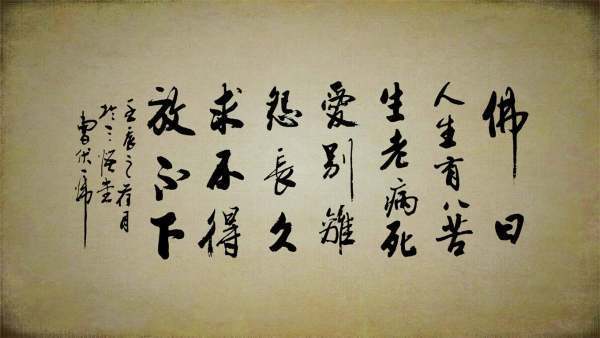 佛曰
人生有八苦
生老病死
愛別離
怨長久
求不得
放不下
壬辰之荷月
於三堂